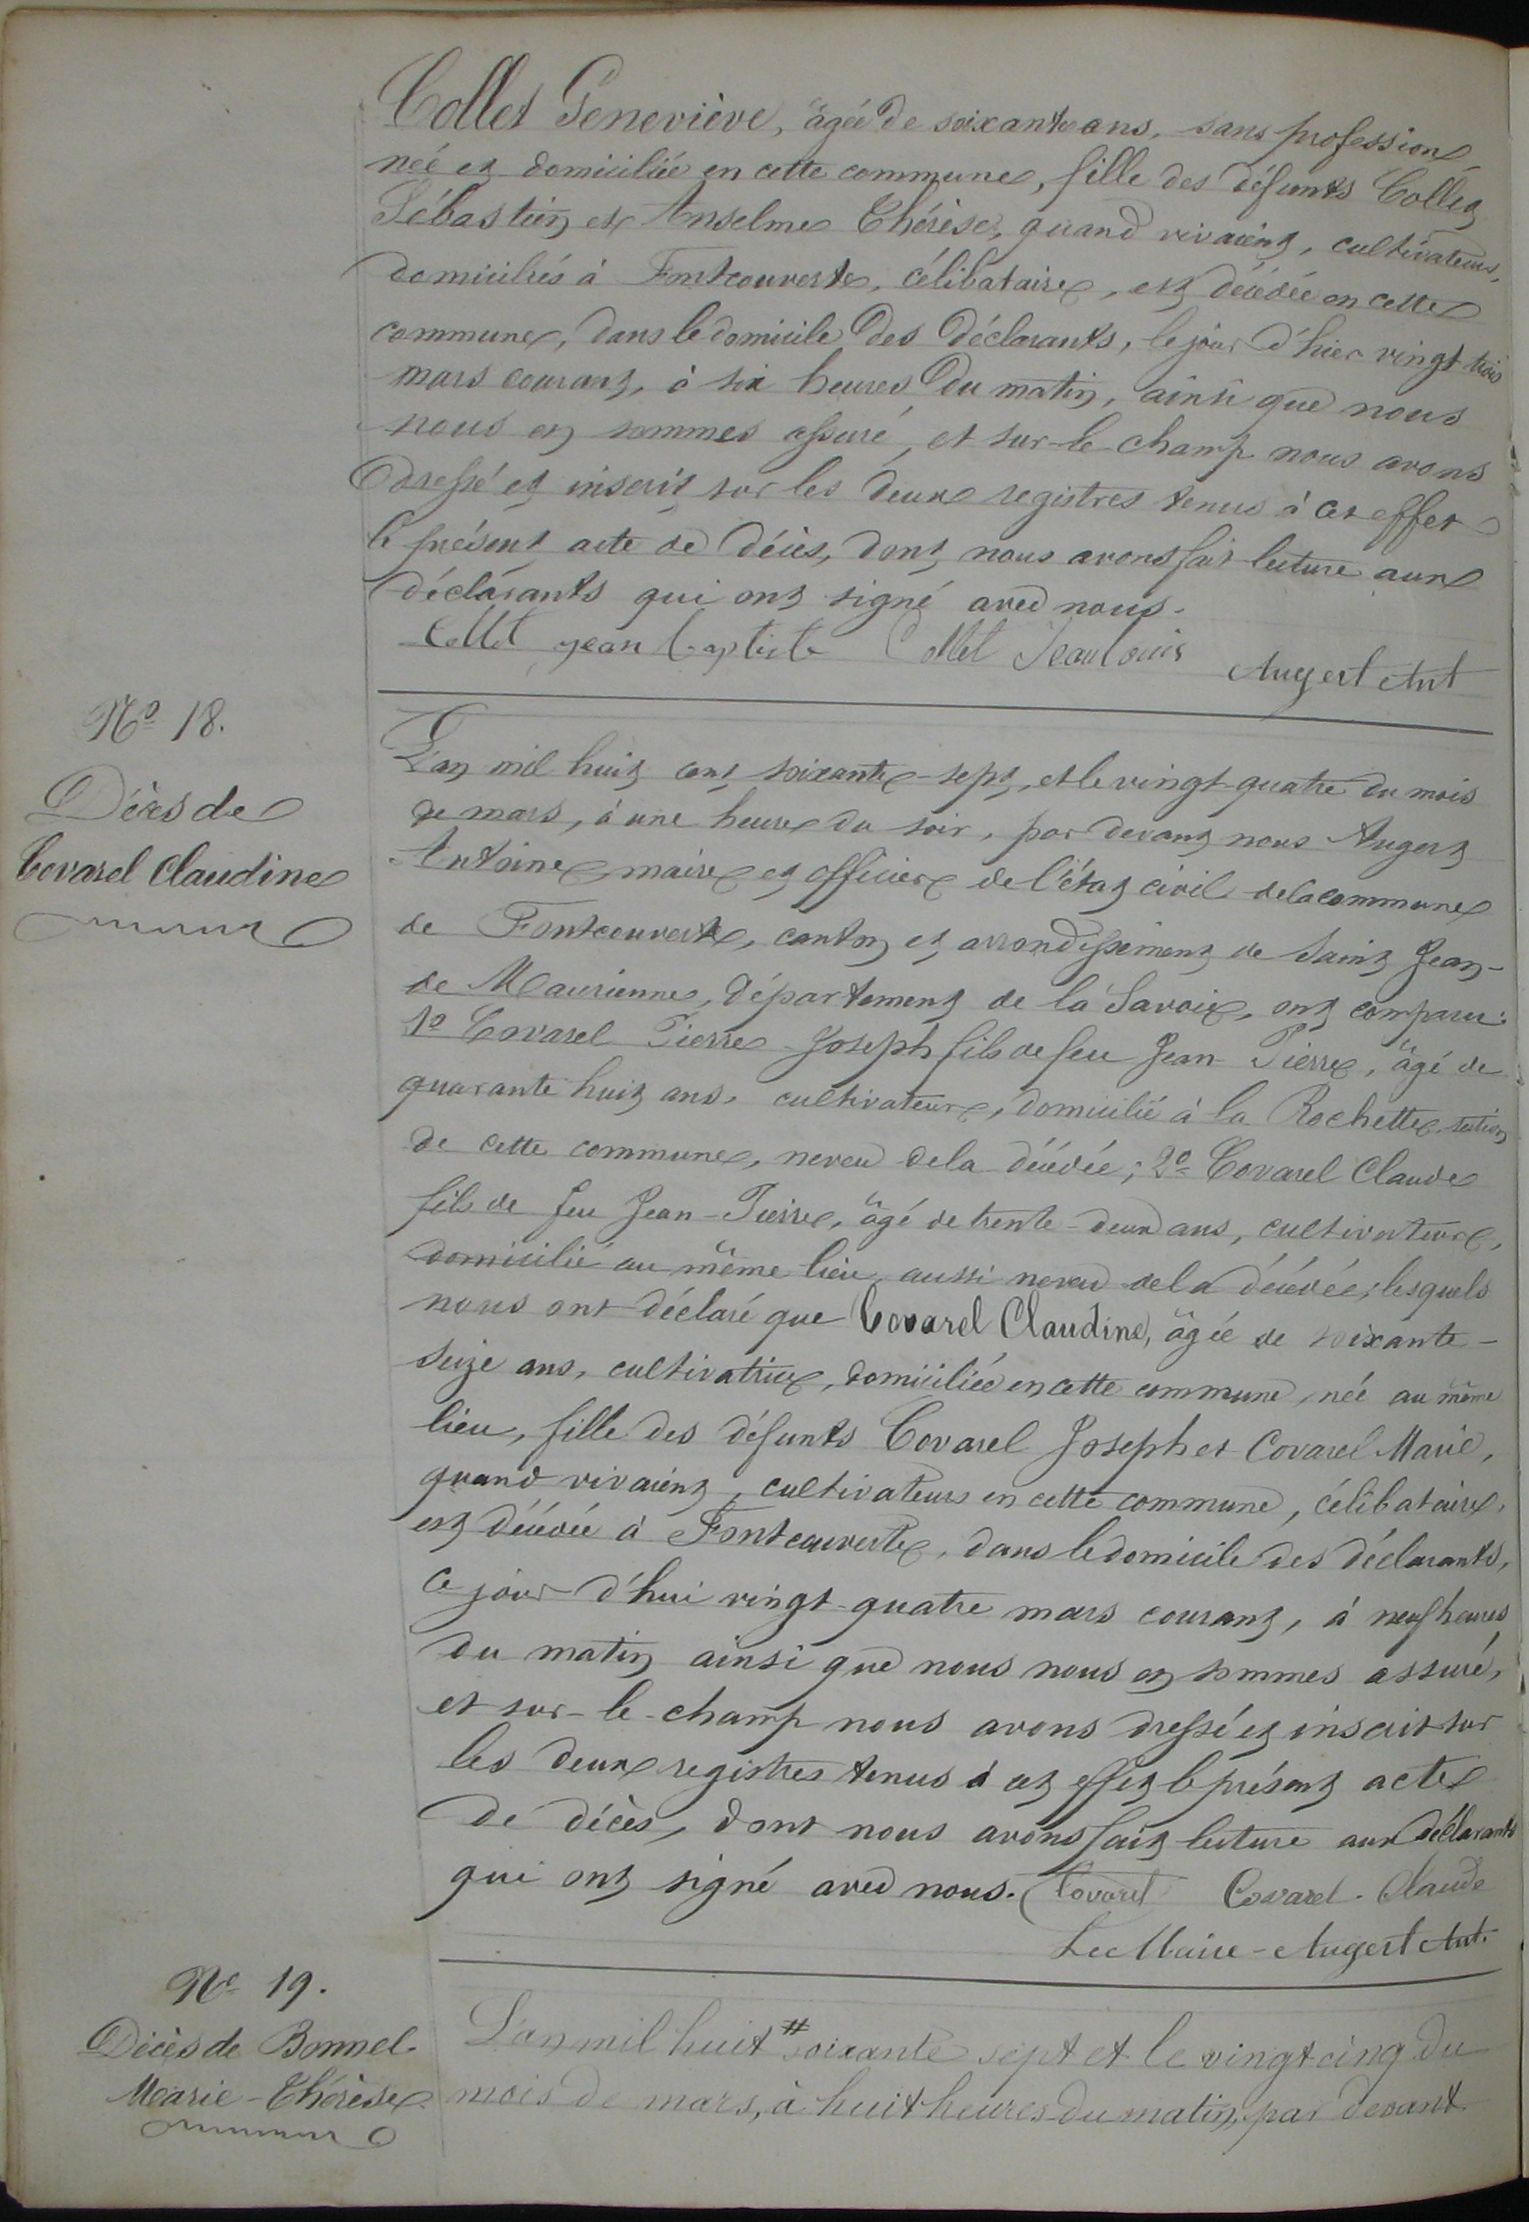 Collet Geneviève, âgée de soixante ans, sans profession
née et domiciliée en cette commune, fille des défunts Collet
Sébastien et Anselme Thérèse, quand vivaient, cultivateurs,
domiciliés à Fontcouverte, célibataire, est décédée en cette
commune, dans le domicile des déclarants, le jour d'hier vingt-trois
mars courant, à six heures du matin, ainsi que nous
nous en sommes assuré, et sur-le-champ nous avons
dressé et inscrit sur les deux registres tenus à cet effet
le présent acte de décès, dont nous avons fait lecture aux
déclarants qui ont signé avec nous.
Collet jean baptiste Collet Jean Louis Augert Ant
No 18.
Décès de
Covarel Claudine
L'an mil huit cent soixante-sept, et le vingt-quatre du mois
de mars, à une heure du soir, par devant nous Augert
Antoine, maire et officier de l'état civil de la commune
de Fontcouverte, canton et arrondissement de Saint Jean-
de Maurienne, département de la Savoie, ont comparu:
1o Covarel Pierre-Joseph fils de feu Jean-Pierre, âgé de
quarante huit ans, cultivateur, domicilié à la Rochette, section
de cette commune, neveu de la décédée; 2o Covarel Claude
fils de feu Jean-Pierre, âgé de trente-deux ans, cultivateur,
domicilié au même lieu, aussi neveu de la décédée; lesquels
nous ont déclaré que Covarel Claudine, âgée de soixante-
seize ans, cultivatrice, domiciliée en cette commune, née au même
lieu, fille des défunts Covarel Joseph et Covarel Marie,
quand vivaient, cultivateurs en cette commune, célibataire,
est décédée à Fontcouverte, dans le domicile des déclarants,
ce jour d'hui vingt-quatre mars courant, à neuf heures
du matin ainsi que nous nous en sommes assuré,
et sur-le-champ nous avons dressé et inscrit sur
les deux registres tenus à cet effet le présent acte
de décès, dont nous avons fait lecture aux déclarants
qui ont signé avec nous. Covarel Covarel. Claude
Le Maire - Augert Ant.
No 19.
Décès de Bonnel
Marie-Thérèse
L'an mil huit # soixante sept et le vingt cinq du
mois de mars, à huit heures du matin, par devant